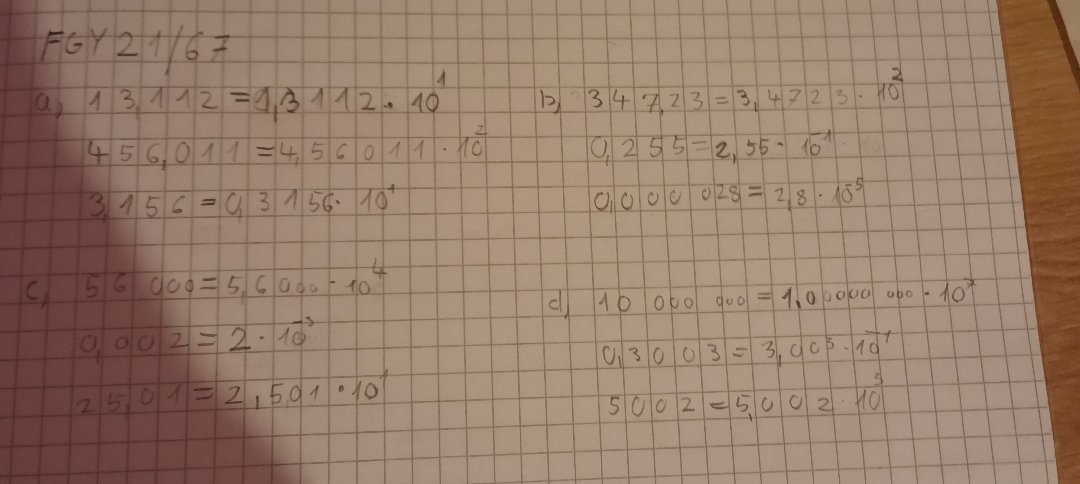 FGY 21/67
a, 13,112 = 1,3112 · 10¹
456,011 = 4,56011 · 10²
3,156 = 0,3156 · 10¹
b, 347,23 = 3,4723 · 10²
0,255 = 2,55 · 10⁻¹
0,000 028 = 2,8 · 10⁻⁵
c, 56 000 = 5,6000 · 10⁴
0,002 = 2 · 10⁻³
25,01 = 2,501 · 10¹
d, 10 000 000 = 1,00000 000 · 10⁷
0,3003 = 3,003 · 10⁻¹
5002 = 5,002 · 10³